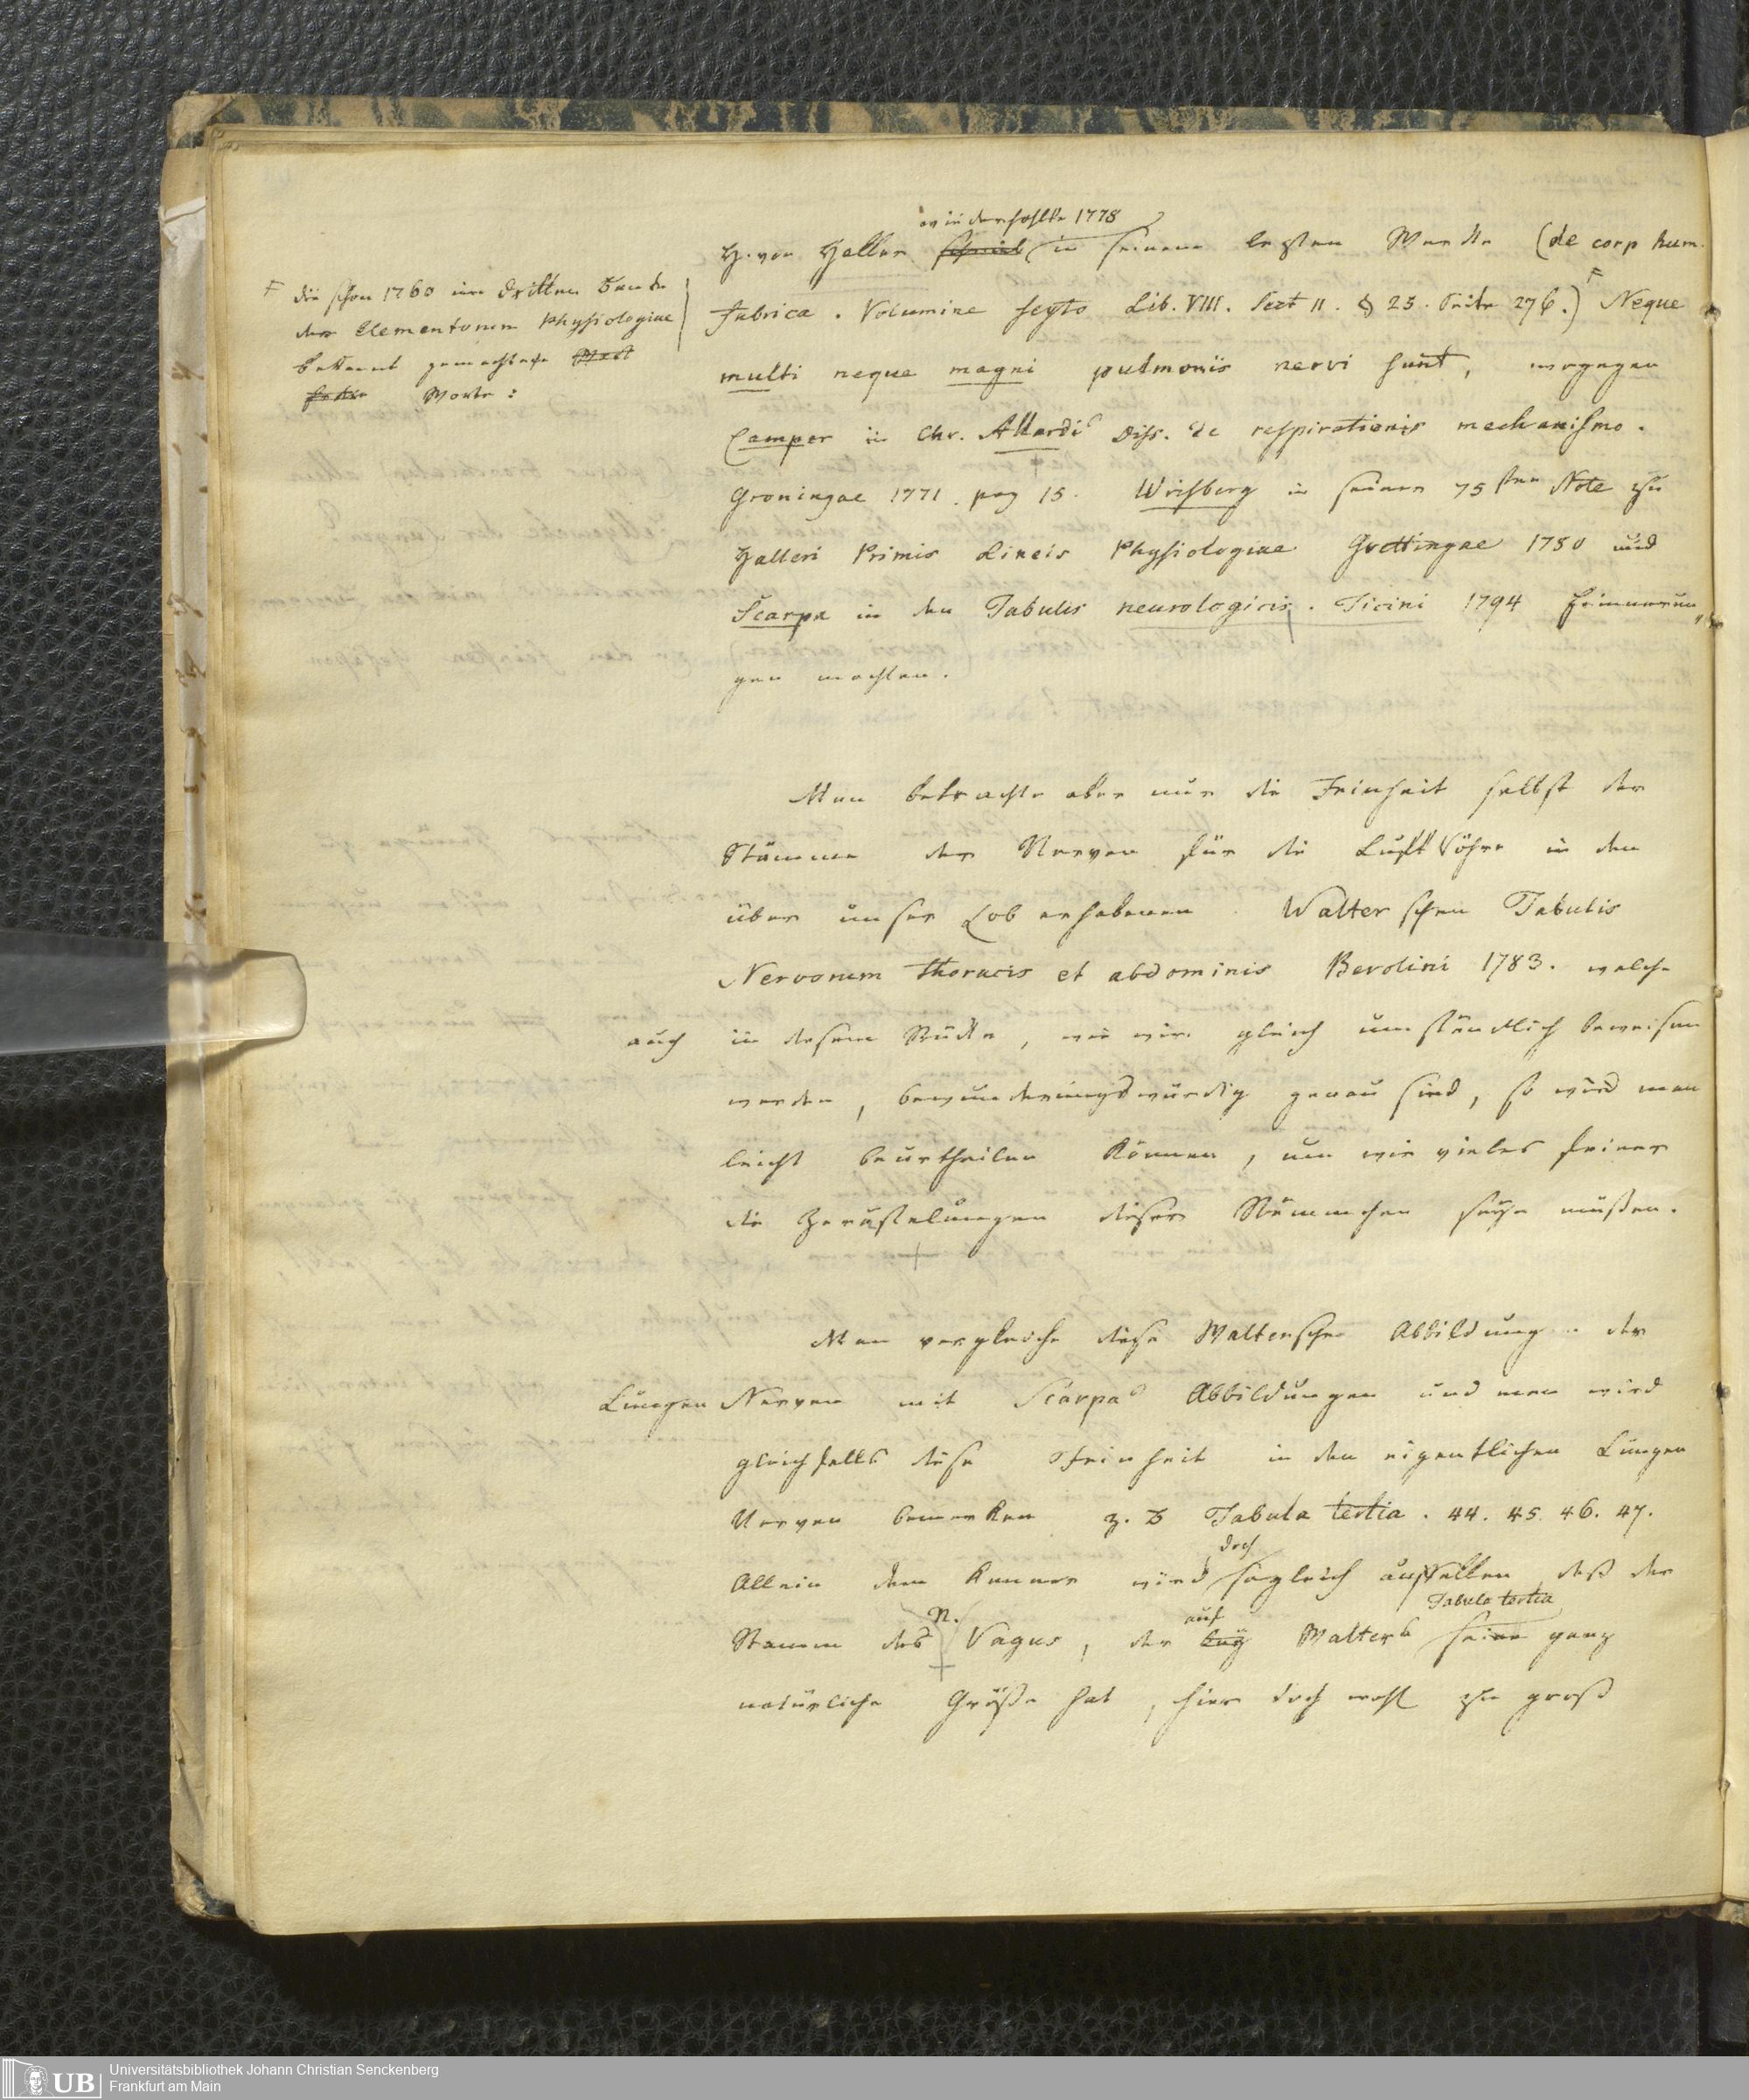 wiederhohlte 1778
H. von Haller schrieb in seinem lezten Werke (de corp hum.
fabrica. Volumine sexto Lib. VIII. Sect II. § 23. Seite 276.) F Neque
F die schon 1760 im dritten Bande
der Elementorum Physiologiae
bekannt gemachten
Worte:
multi neque magni pulmonis nervi sunt, wogegen
Camper in Chr. Allardi Diss. de respirationis mechanismo.
Groningae 1771. pag 15. Wrisberg in seiner 75sten Note zu
Halleri Primis Lineis Physiologiae Goettingae 1780 und
Scarpa in den Tabulis neurologicis. Ticini 1794 Erinnerun„
gen machten.
Man betrachte aber nur die Feinheit selbst der
Stämme der Nerven für die Luftröhre in den
über unser Lob erhabenen Walterschen Tabulis
Nervorum thoracis et abdominis Berolini 1783. welche
auch in diesem Stücke, wie wir gleich umständlich beweisen
werden, bewunderungswürdig genau sind, so wird man
leicht beurtheilen können, um wie vieles feiner
die Zerästelungen dieser Stämmchen seyn müßen.
Man vergleiche diese Waltersche Abbildung der
Lungen Nerven mit Scarpas Abbildungen und man wird
gleichfalls diese Feinheit in den eigentlichen Lungen
Nerven bemerken z. B Tabula tertia. 44. 45. 46. 47.
doch
Allein dem Kenner wird sogleich auffallen, daß der
N. auf Tabula tertia
Stamm des Vagus, der bey Walters seine ganz
natürliche Größe hat, hier doch wohl zu groß
UB Universitätsbibliothek Johann Christian Senckenberg
Frankfurt am Main